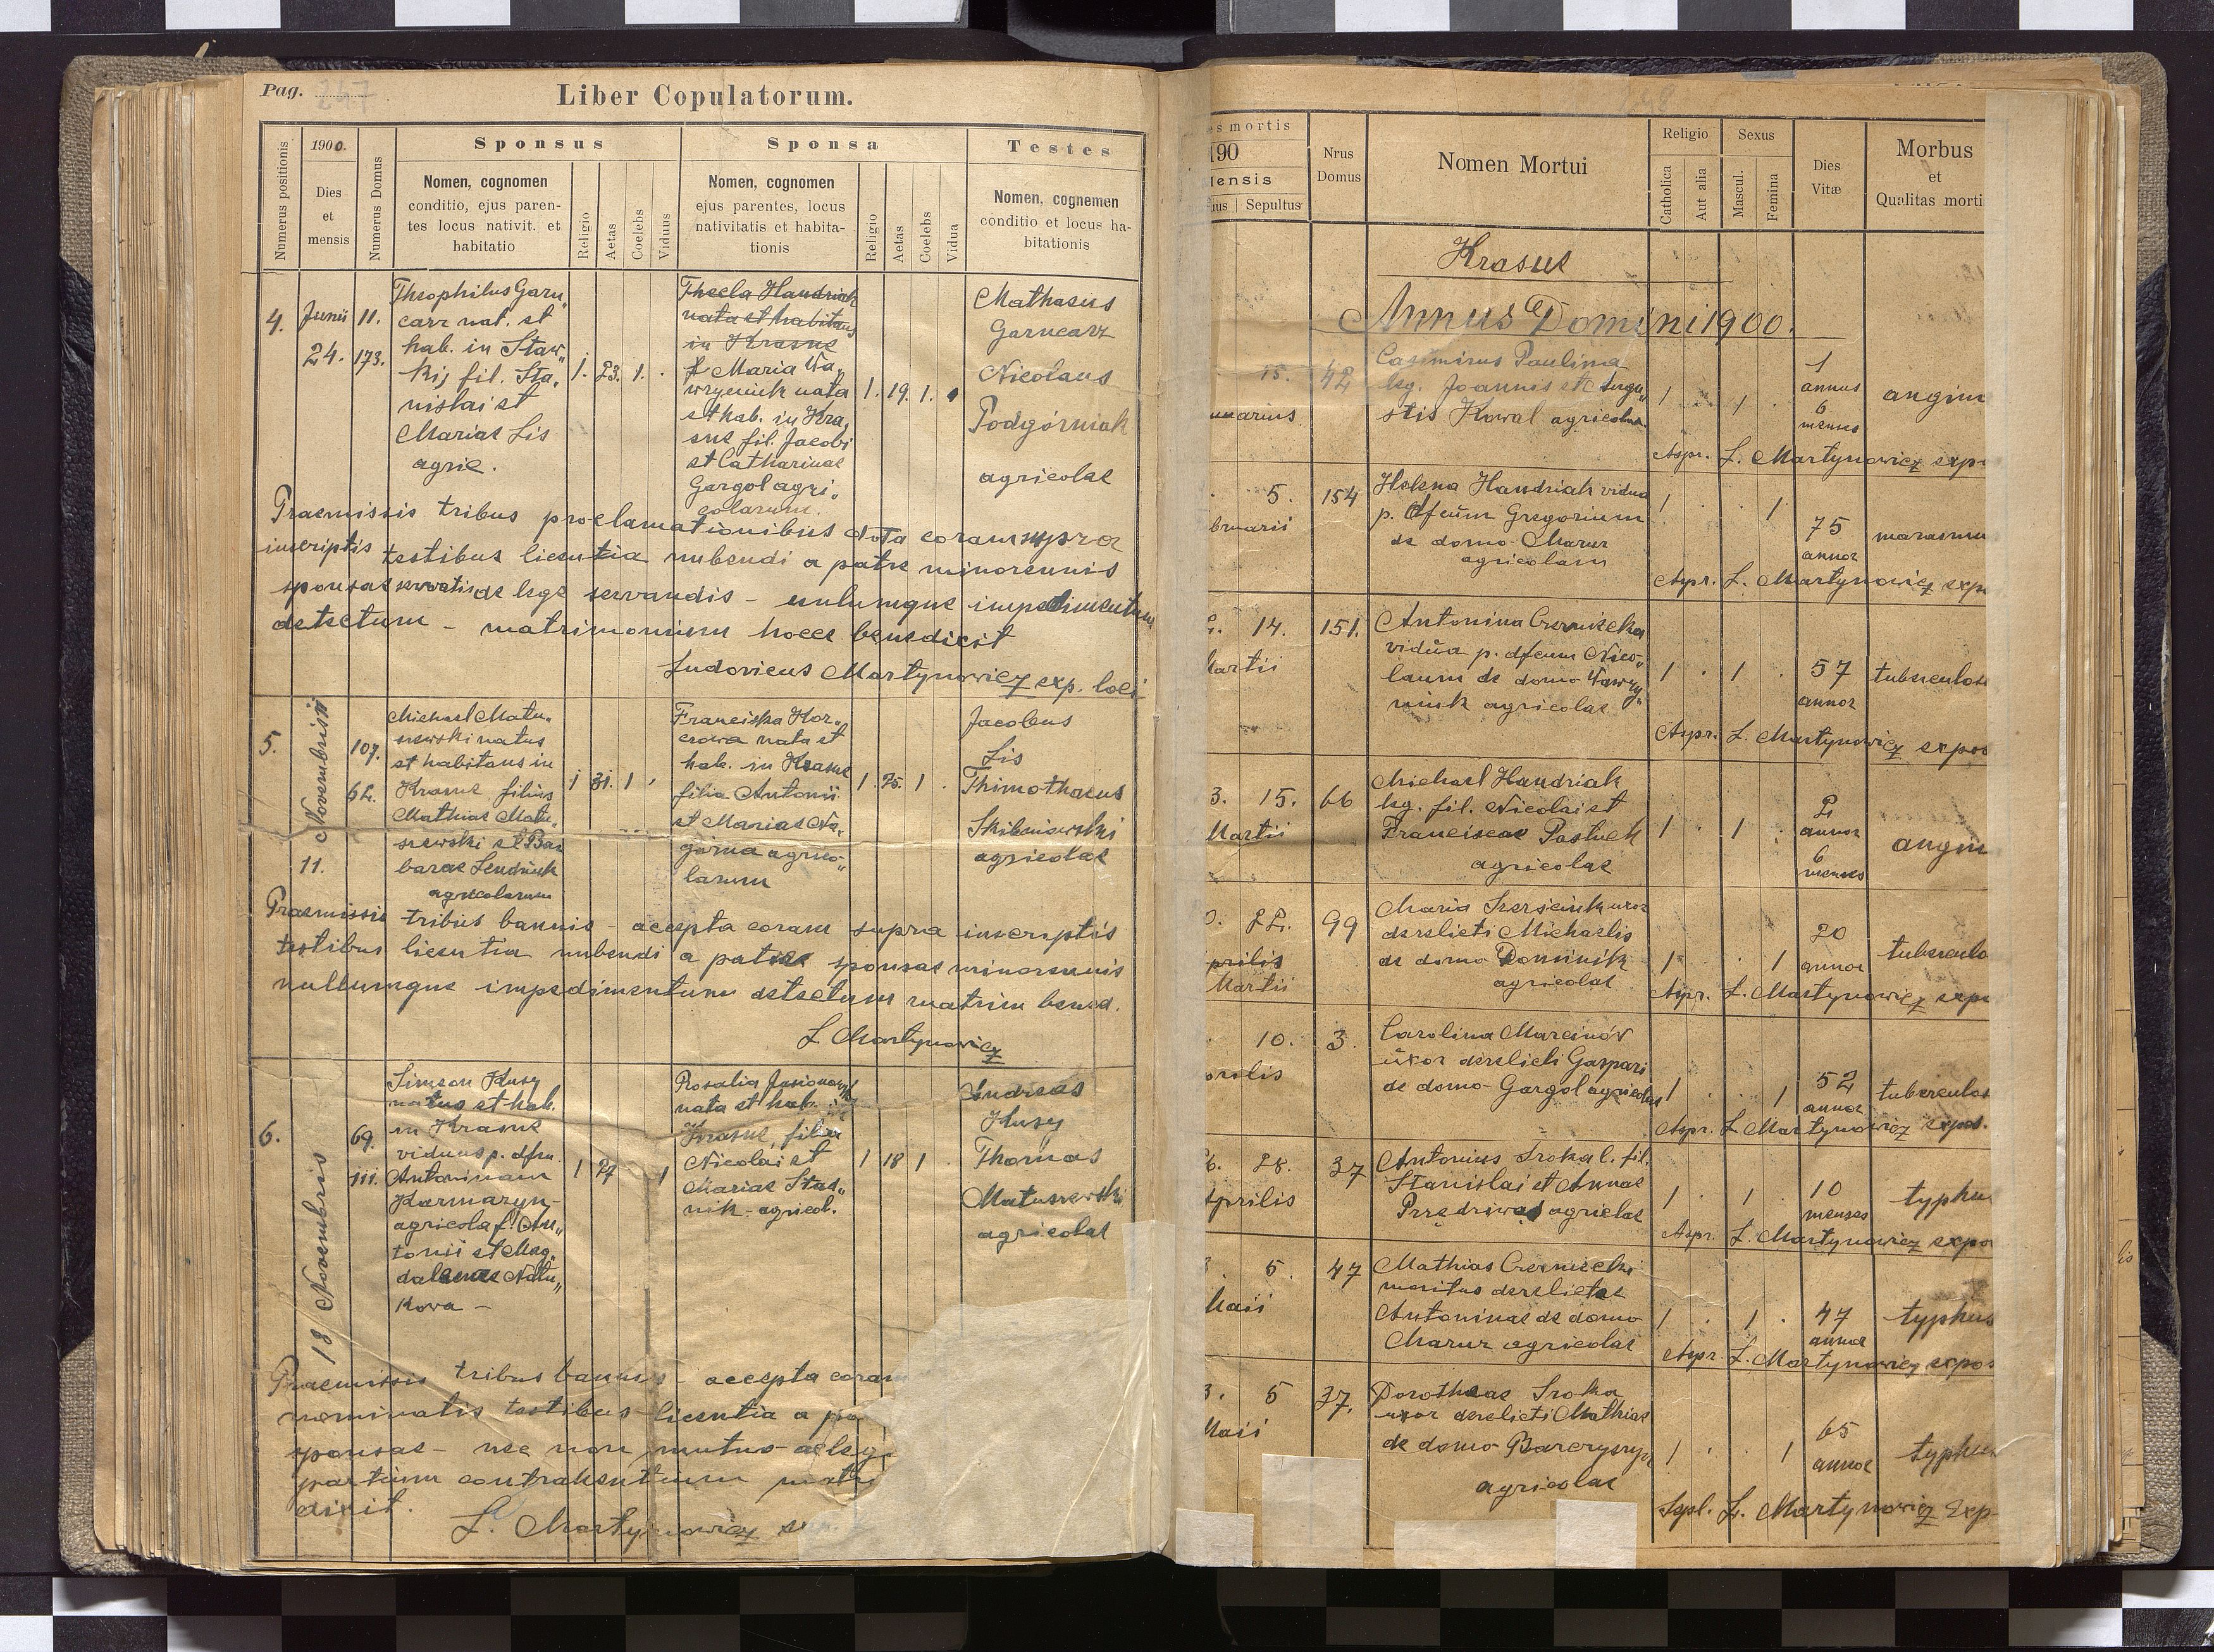 Pag. 247
Liber Copulatorum.
Numerus positionis
1900.
Dies
et
mensis
Numerus Domus
Sponsus
Nomen, cognomen
conditio, ejus paren-
tes locus nativit. et
habitatio
Religio
Aetas
Coelebs
Viduus
Sponsa
Nomen, cognomen
ejus parentes, locus
nativitatis et habita-
tionis
Religio
Aetas
Coelebs
Vidua
Testes
Nomen, cognemen
conditio et locus ha-
bitationis
4.
Junii
24.
11.
173.
Theophilus Garn„
carz nat. et
hab. in Staw„
kij fil. Sta„
nislai et
Mariae Lis
agric.
1. 23. 1.
Thecla Handriak
nata et habitans
in Krasne
Maria Wa„
wryeniuk nata
et hab. in Kra„
sne fil. Jacobi
et Catharinae
Gargol agri„
colarum.
1. 19. 1.
Mathaeus
Garncarz
Nicolaus
Podgórniak
agricolae
Praemissis tribus proclamationibus data coram supra
inscriptis testibus licentia nubendi a patre minorennis
sponsae servatis de lege servandis - nullumque impedimentum
detectum - matrimonium hocce benedixit
Ludovicus Martynowicz exp. loci
5.
Novembris
11.
107.
62.
Michael Matu„
szewski natus
et habitans in
Krasne filius
Mathiae Matu„
szewski et Bar
barae Lendziuk
agricolarum
1 31. 1
Franciska Kor„
czowa nata et
hab. in Krasne
filia Antonii
et Mariae Na„
gorna agrico„
larum
1. 25. 1
Jacobus
Lis
Thimothaeus
Skibniewski
agricolae
Praemissis tribus bannis - accepta coram supra inscriptis
testibus licentia nubendi a patre sponsae minorennis
nullumque impedimentum detectum matrim bened.
L. Martynowicz
6.
18 Novembris
69.
111.
Simeon Kusy
natus et hab.
in Krasne
viduus p. dfm.
Antoninam
Karmaryn-
agricola f. An„
tonii et Mag„
dalenae Matu„
kowa -
1 27 1
Rosalia
nata et hab. in
Krasne, filia
Nicolai et
Mariae Stas„
nik - agricol.
1 18 1
Andreas
Kusy
Thomas
Matuszewski
agricolae
Praemissis tribus bannis - accepta coram
nominatis testibus licentia a pa
sponsae - nec non mutuo
partium contrahentium matri
dixit.
L. Martynowicz
es mortis
190
Mensis
Sepultus
Nrus
Domus
Nomen Mortui
Religio
Catholica
Aut alia
Sexus
Mascul.
Femina
Dies
Vitæ
Morbus
et
Qualitas morti
Krasne
Annus Domini 1900.
15.
nuarius
42
Casimirus Paulina
leg. Joannis et Augu„
stis Kowal agricolae.
1 1
1
annus
6
menses
angin
Aspr. L. Martynowicz exp
5.
bruarii
154
Helena Handriak vidua
p. dfcum Gregorium
de domo Mazur
agricolam
1 1
75
annor
marasmu
Aspr. L. Martynowicz exp
14.
Martii
151.
Antonina Czernicka
vidua p. dfcum Nico„
laum de domo Wawry„
niuk agricolae
1 1
57
annor
tuberculos
Aspr. L. Martynowicz expos
3. 15.
Martii
66
Michael Handriak
leg. fil. Nicolai et
Franciscae Pastuch
agricolae
1 1
2
annor
6
menses
angin
22.
prilis
Martii
99
Maria uxor
derelicti Michaelis
de domo Dominik
agricolae
1 1
20
annor
tuberculo
Aspr. L. Martynowicz exp
10.
prilis
3.
Carolina Marcinów
uxor derelicti Gaspari
de domo Gargol agricolae
1 1
52
annor
tuberculos
Aspr. L. Martynowicz expos.
28.
Aprilis
37
Antonius Sroka l. fil.
Stanislai et Annae
agricolae
1 1
10
menses
typhus
Aspr. L. Martynowicz expo
5.
Maii
47
Mathias Czernicki
maritus derelictae
Antoninae de domo
Mazur agricolae
1 1
47
annor
typhus
Aspr. L. Martynowicz expos
3. 5
Maii
37.
Dorotheae Sroka
uxor derelicti Mathiae
de domo
agricolae
1 1
65
annor
typhus
L. Martynowicz Exp